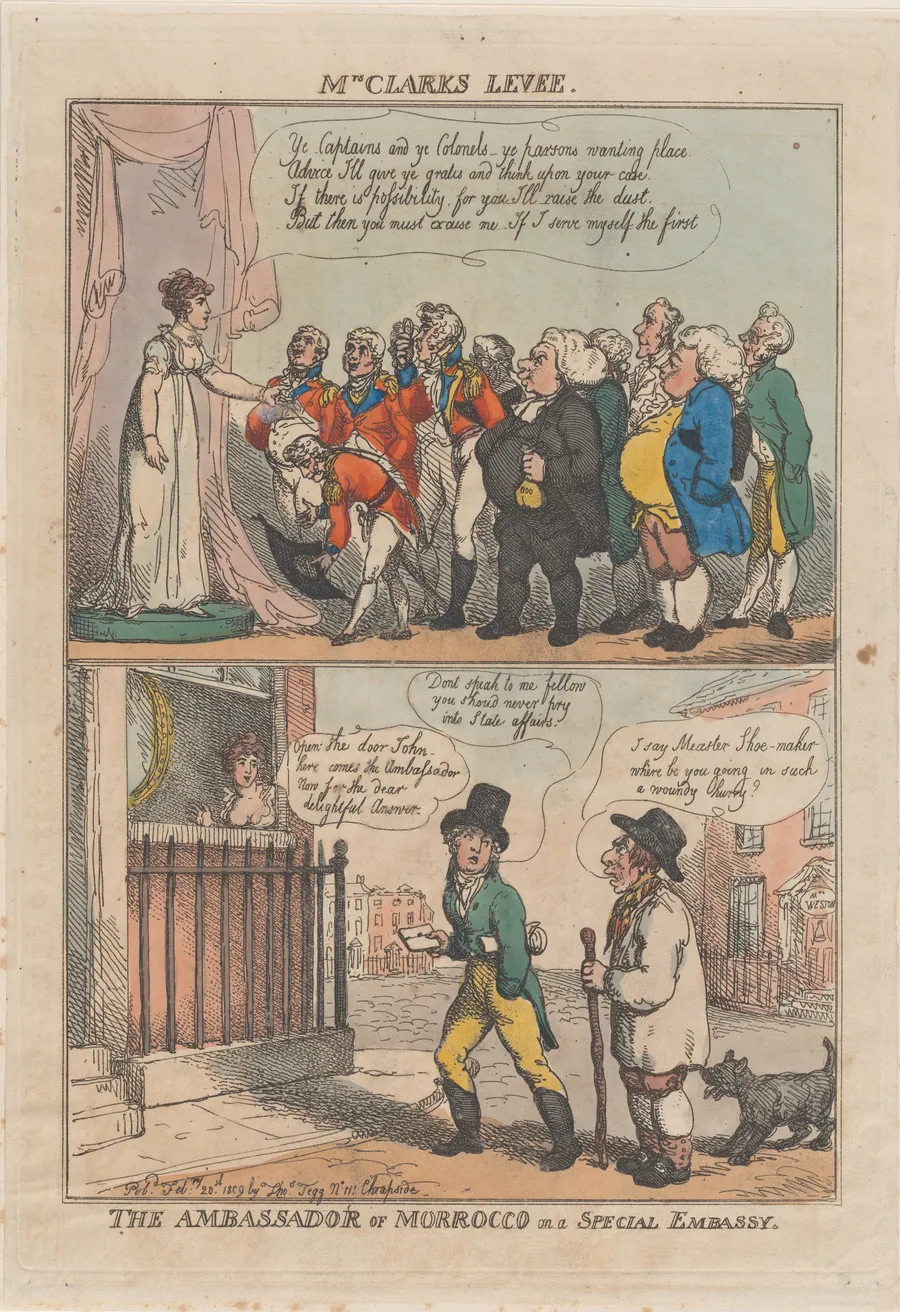 Mrs CLARKS LEVEE.
Ye Captains and ye Colonels ye parsons wanting place
Advice I'll give ye gratis and think upon your case
If there is possibility, for you I'll raise the dust.
But then you must excuse me If I serve myself the first
Dont speak to me fellow
you should never pry
into State affairs.
Open the door John
here comes the Ambassador
Now for the dear
delightful Answer.
I say Measter Shoe-maker
where be you going in such
a woundy hurry?
Mrs
WESTON
Pubd. Feby. 20st 1809 by Thos Tegg No 111 Cheapside
THE AMBASSADOR OF MORROCCO on a SPECIAL EMBASSY.